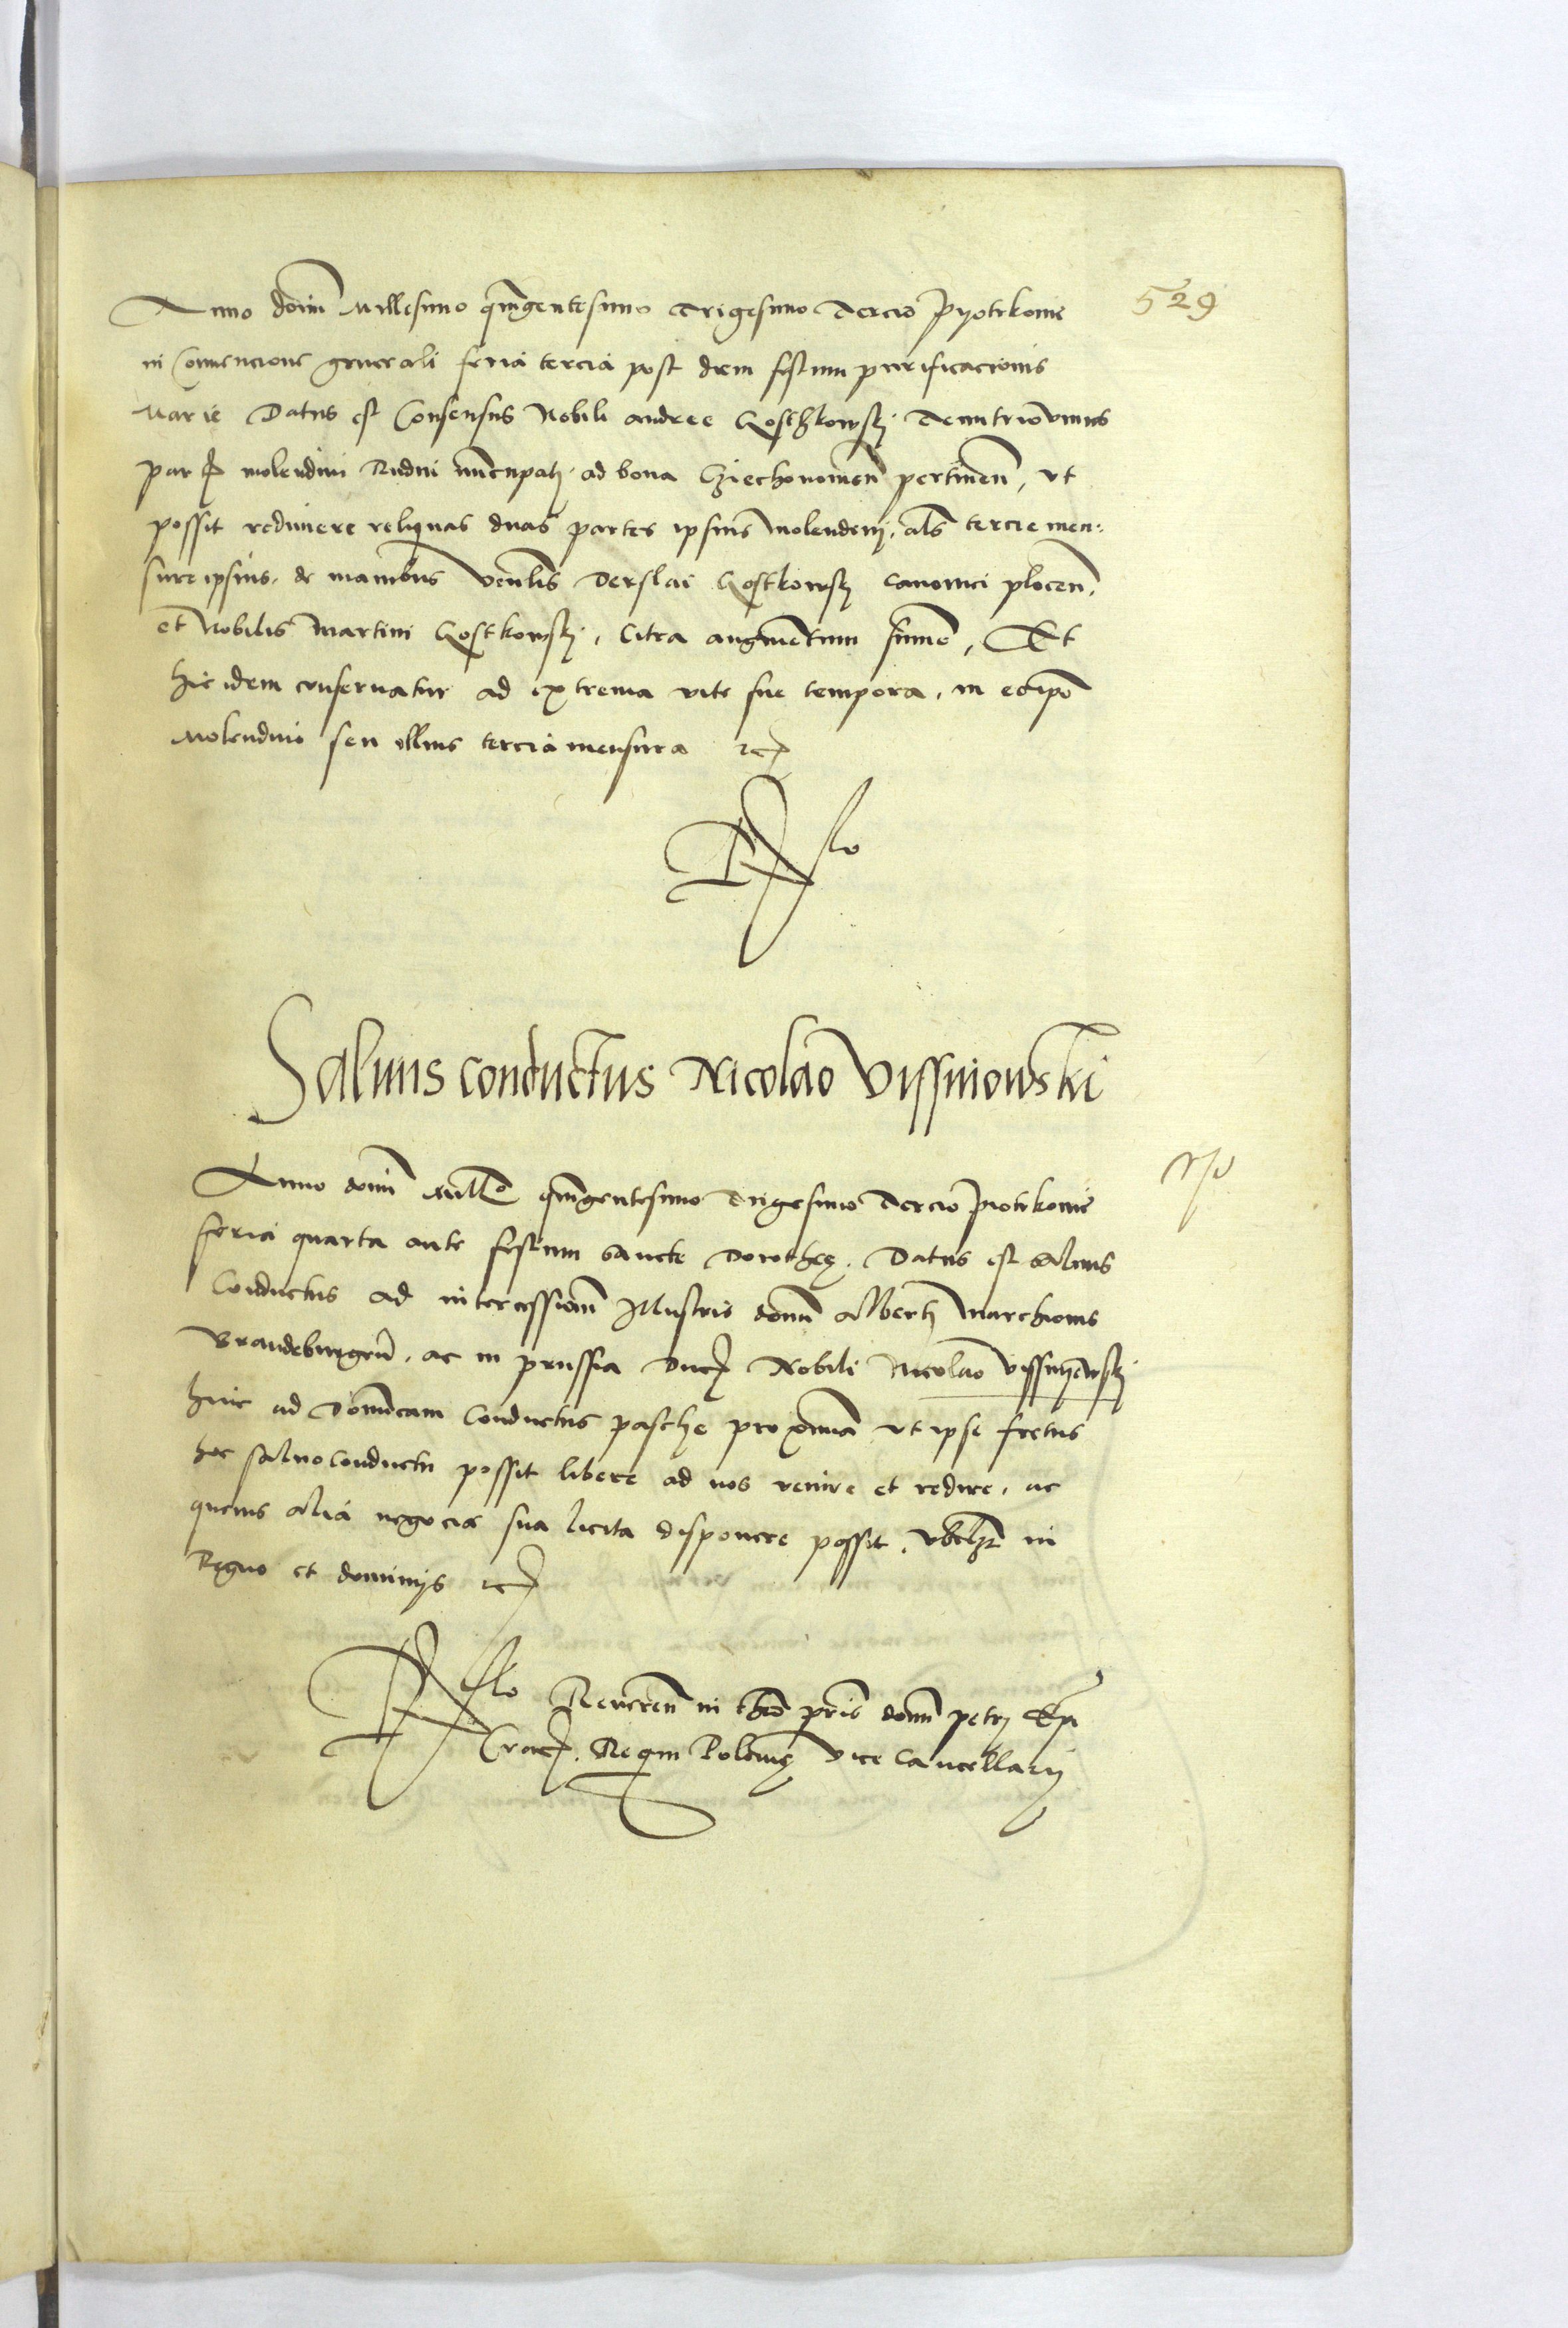 529
Anno domi Millesimo quigentesimo Trigesimo Tercio Pyotrkovie
in Convencione generali feria tercia post diem festum purificacionis
Marie Datus est Consensus Nobili andree Gosthkowskj
par molendini Rudni nuncupatj ad bona pertinen, vt
possit redimere reliquas duas partes ipsius molendinj, als tercie men:
sure ipsius, de manibus Venlis Derslai Gostkowskj Canonici plocen,
et Nobilis Martini Gostkowskj, Citra augmentum summe, Et
hic idem conservatur ad extrema vite sue tempora, in
Molendino seu illius tercia mensura etc
Rlo
Salvus conductus Nicolao Vyssniowski
Anno domi Millo quigentesimo Trigesimo Tercio Piotrkovie
feria quarta ante festum sancte Dorothee. Datus est salvus
Conductus ad intercessionem Illustris domi Albertj Marchionis
Brandeburgen, ac in prussia Ducj Nobili Nicolao
hinc ad Dominicam Conductus pasche proximam vt ipse fretus
hoc salvoconductu possit libere ad nos venire et redire, ac
quevis alia negocia sua licita disponere possit, vbilzt in
Regno et dominijs etc
Rlo Reveren in pris domi petrj Epi
Crac, Regni Polonie Vice Cancellarij